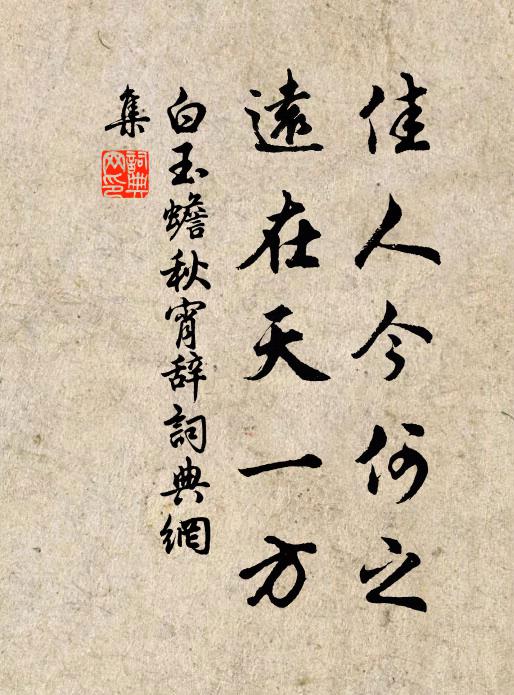 佳人今何之
遠在天一方
白玉蟾秋宵辞詞典網
集
詞典
网印